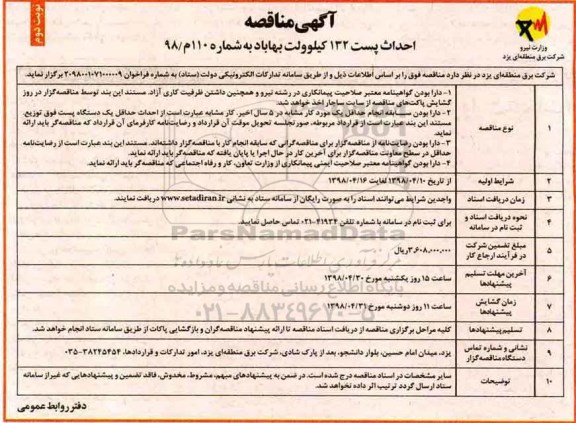 نوبت دوم
آگهی مناقصه
احداث پست ۱۳۲ کیلوولت بهاباد به شماره ۱۱۰م/۹۸
وزارت نیرو
شرکت برق منطقه‌ای یزد
شرکت برق منطقه‌ای یزد در نظر دارد مناقصه فوق را بر اساس اطلاعات ذیل و از طریق سامانه تدارکات الکترونیکی دولت (ستاد) به شماره فراخوان ۲۰۹۸۰۰۱۰۷۱۰۰۰۰۰۹ برگزار نماید.
۱ نوع مناقصه
۱- دارا بودن گواهینامه معتبر صلاحیت پیمانکاری در رشته نیرو و همچنین داشتن ظرفیت کاری آزاد. مستند این بند توسط مناقصه‌گزار در روز
گشایش پاکت‌های مناقصه از سایت ساجار اخذ خواهد شد.
۲- دارا بودن سابقه انجام حداقل یک مورد کار مشابه در ۵ سال اخیر. کار مشابه عبارت است از احداث حداقل یک دستگاه پست فوق توزیع.
مستند این بند عبارت است از قرارداد مربوطه، صورتجلسه تحویل موقت آن قرارداد و رضایت‌نامه کارفرمای آن قرارداد که مناقصه‌گر باید ارائه
نماید.
۳- دارا بودن رضایت‌نامه از مناقصه‌گزار برای مناقصه‌گرانی که سابقه انجام کار با مناقصه‌گزار داشته‌اند. مستند این بند عبارت است از رضایت‌نامه
حداقل در سطح معاونت مناقصه‌گزار برای آخرین کار در حال اجرا یا پایان یافته که مناقصه‌گر باید ارائه نماید.
۴- دارا بودن گواهینامه معتبر صلاحیت ایمنی پیمانکاری از وزارت تعاون، کار و رفاه اجتماعی که مناقصه‌گر باید ارائه نماید.
۲ شرایط اولیه از تاریخ ۱۳۹۸/۰۴/۱۰ لغایت ۱۳۹۸/۰۴/۱۶
۳ زمان دریافت اسناد واجدین شرایط می‌توانند اسناد را به صورت رایگان از سامانه ستاد به نشانی www.setadiran.ir دریافت نمایند.
۴ نحوه دریافت اسناد و ثبت نام در سامانه برای ثبت نام در سامانه با شماره تلفن ۴۱۹۳۴-۰۲۱ تماس حاصل نمایید.
۵ مبلغ تضمین شرکت در فرآیند ارجاع کار ۳،۶۰۸،۰۰۰،۰۰۰ریال
۶ آخرین مهلت تسلیم پیشنهادها ساعت ۱۵ روز یکشنبه مورخ ۱۳۹۸/۰۴/۳۰
۷ زمان گشایش پیشنهادها ساعت ۱۱ روز دوشنبه مورخ ۱۳۹۸/۰۴/۳۱
۸ تسلیم پیشنهادها کلیه مراحل برگزاری مناقصه از دریافت اسناد مناقصه تا ارائه پیشنهاد مناقصه‌گران و بازگشایی پاکات از طریق سامانه ستاد انجام خواهد شد.
۹ نشانی و شماره تماس دستگاه مناقصه‌گزار یزد، میدان امام حسین، بلوار دانشجو، بعد از پارک شادی، شرکت برق منطقه‌ای یزد، امور تدارکات و قراردادها، ۳۸۲۴۵۴۵۴-۰۳۵
۱۰ توضیحات
سایر مشخصات در اسناد مناقصه درج شده است. در ضمن به پیشنهادهای مبهم، مشروط، مخدوش، فاقد تضمین و پیشنهادهایی که غیر از سامانه
ستاد ارسال گردد ترتیب اثر داده نخواهد شد.
دفتر روابط عمومی
ParsNamadData
پایگاه اطلاع رسانی مناقصه و مزایده
۰۲۱-۸۸۳۴۹۶۷۰-۵